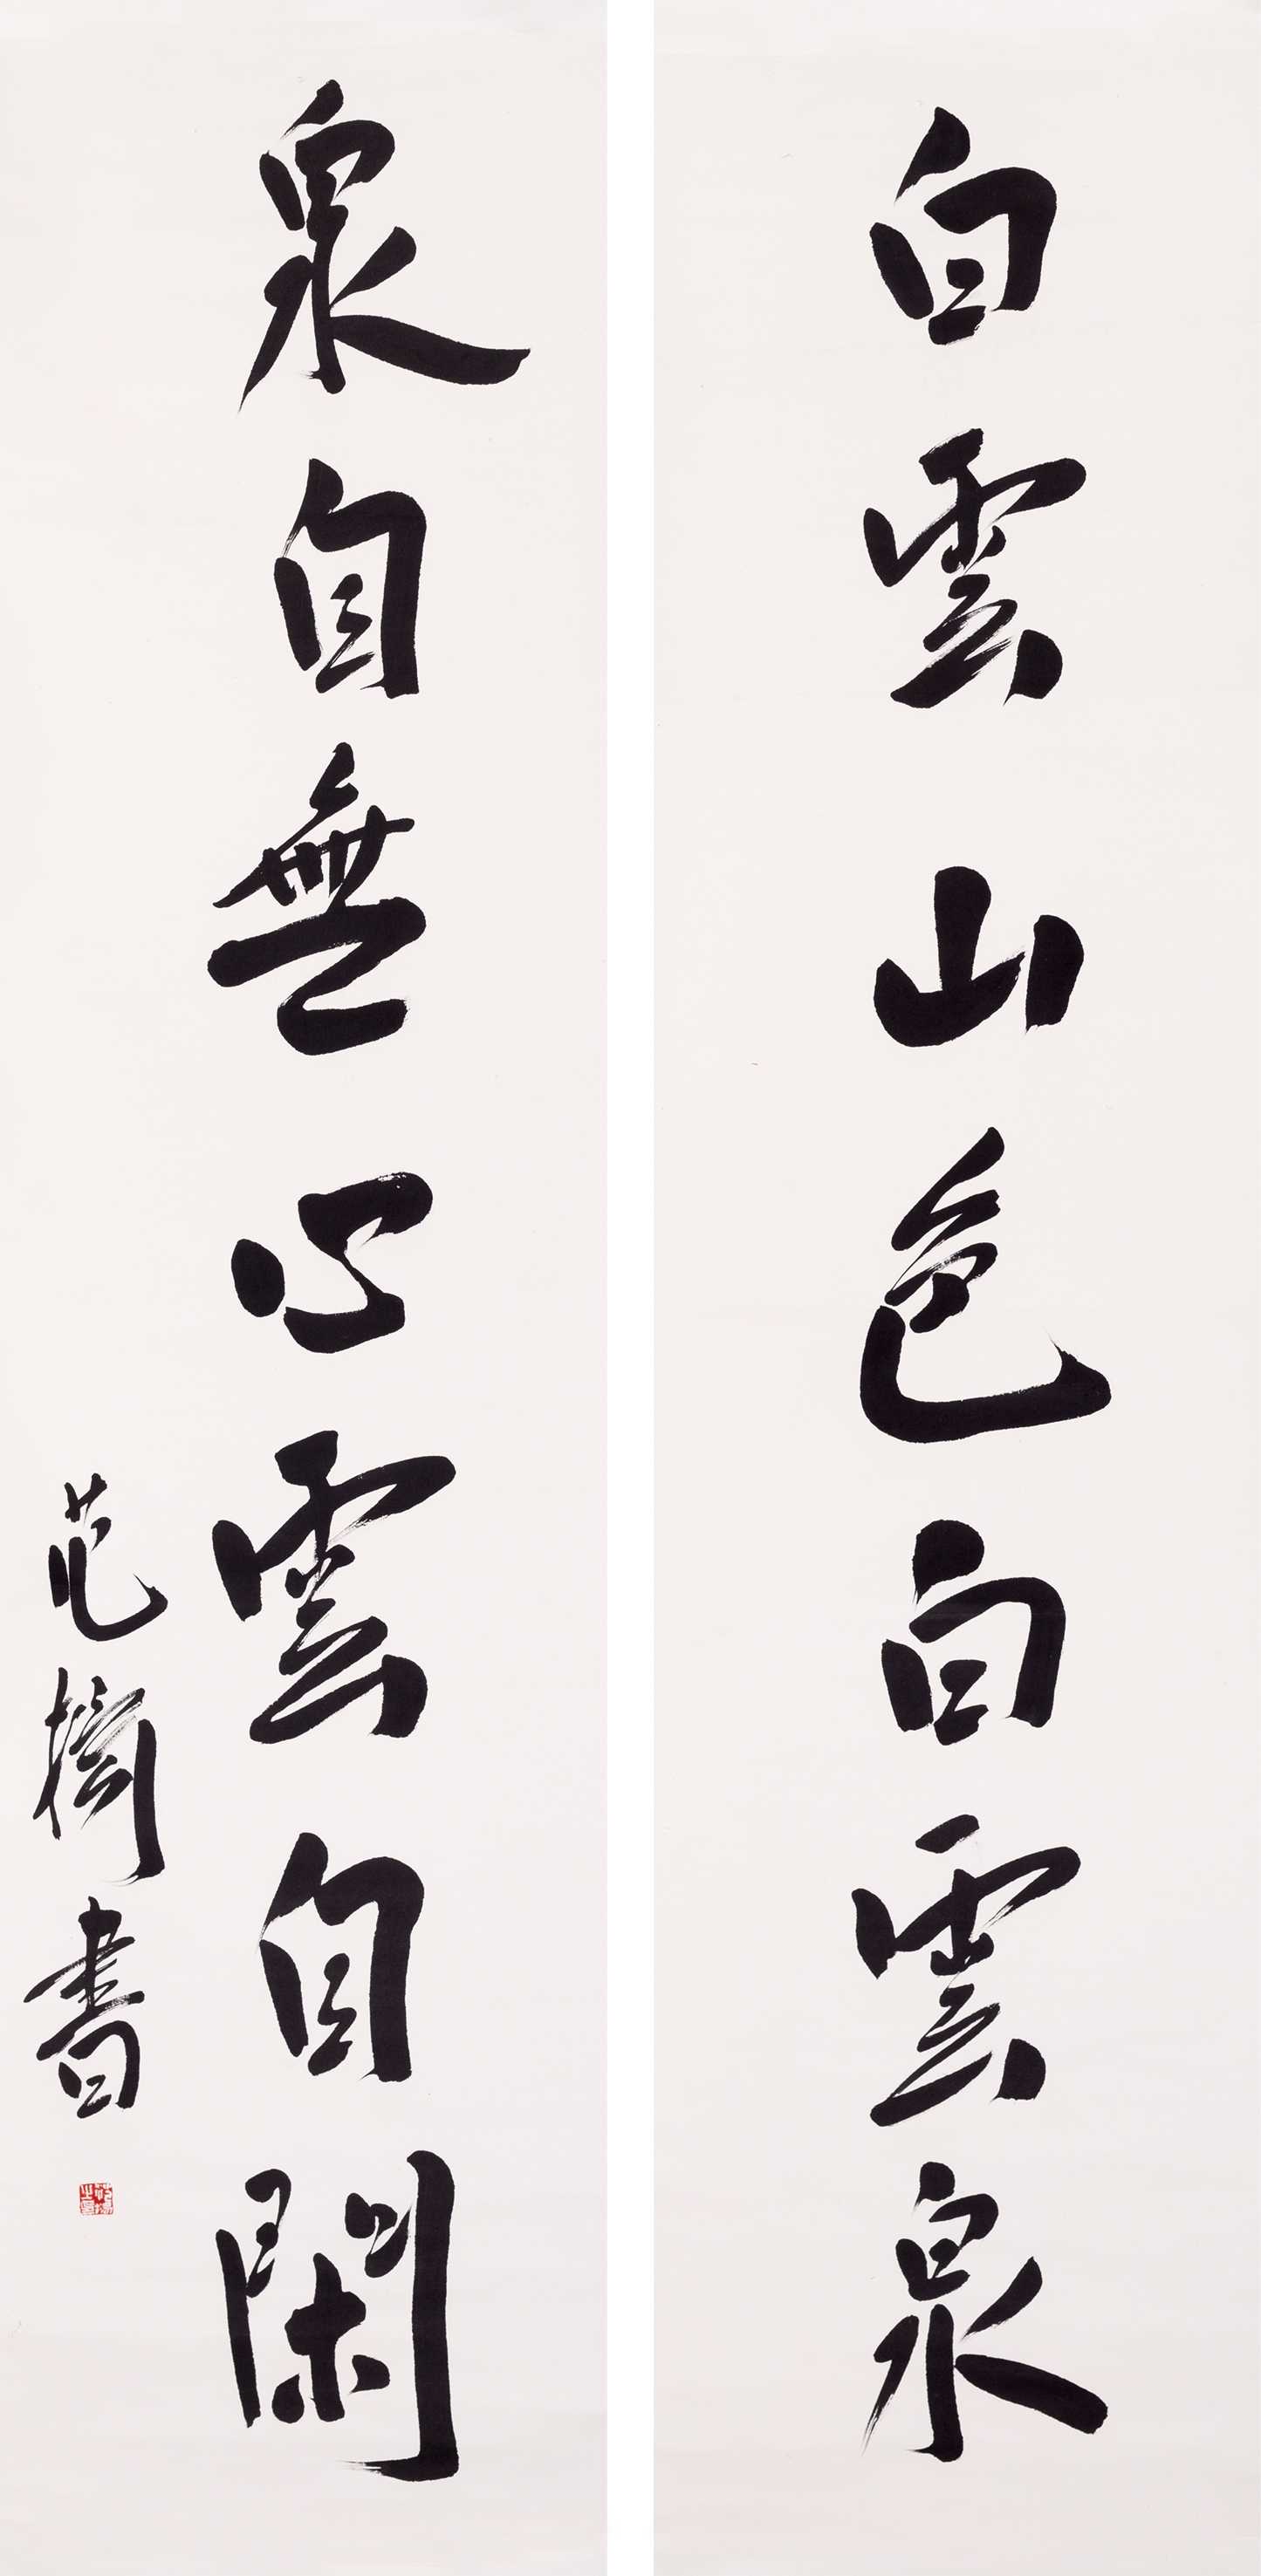 白雲山色白雲泉
泉自無心雲自閑
范㩗書